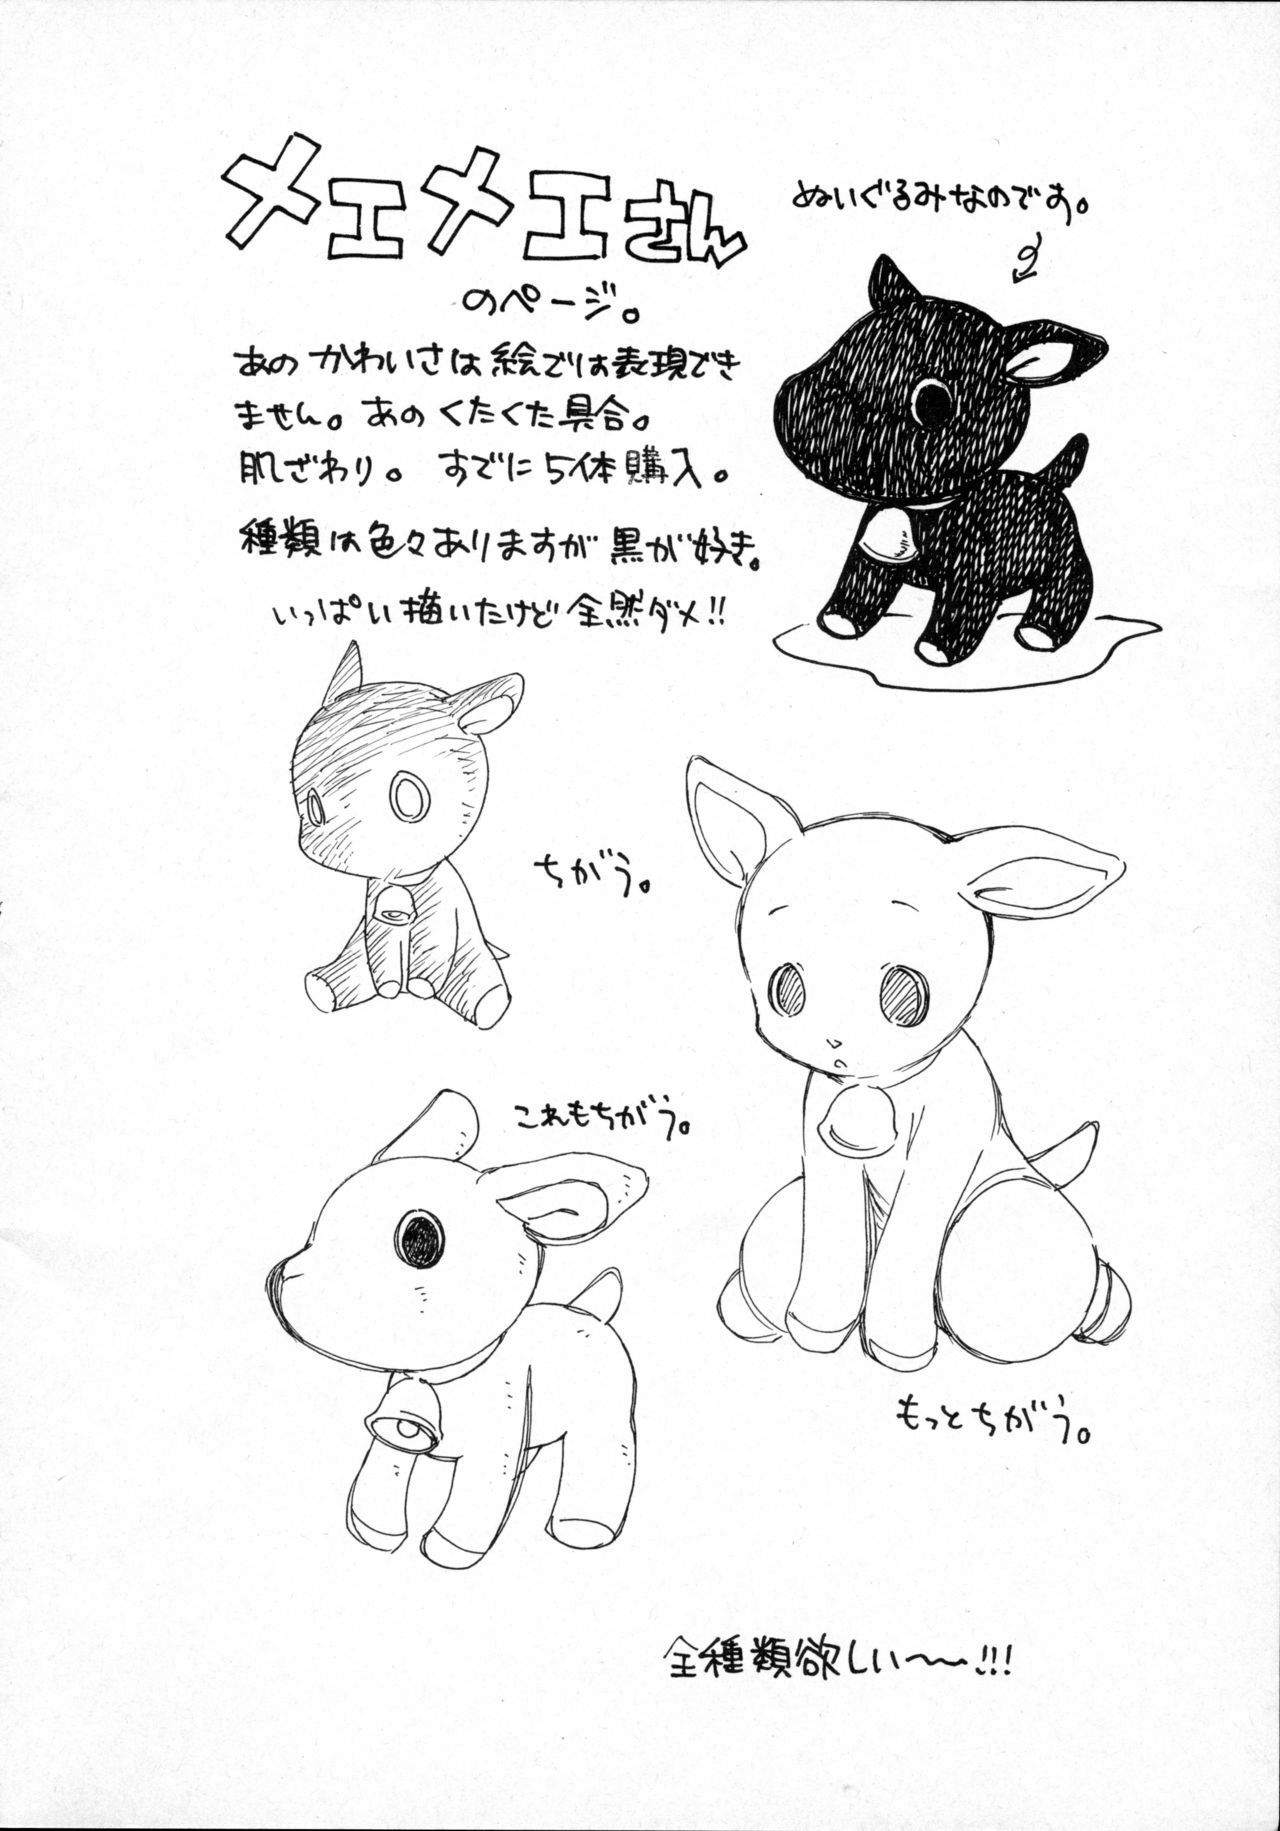 メェメェさん
のページ。
ぬいぐるみなのです。
あのかわいさは絵では表現でき
ません。あのくたくた具合。
肌ざわり。すでに5体購入。
種類は色々ありますが黒が好き。
いっぱい描いたけど全然ダメ!!
ちがう。
これもちがう。
もっとちがう。
全種類欲しい〜〜!!!